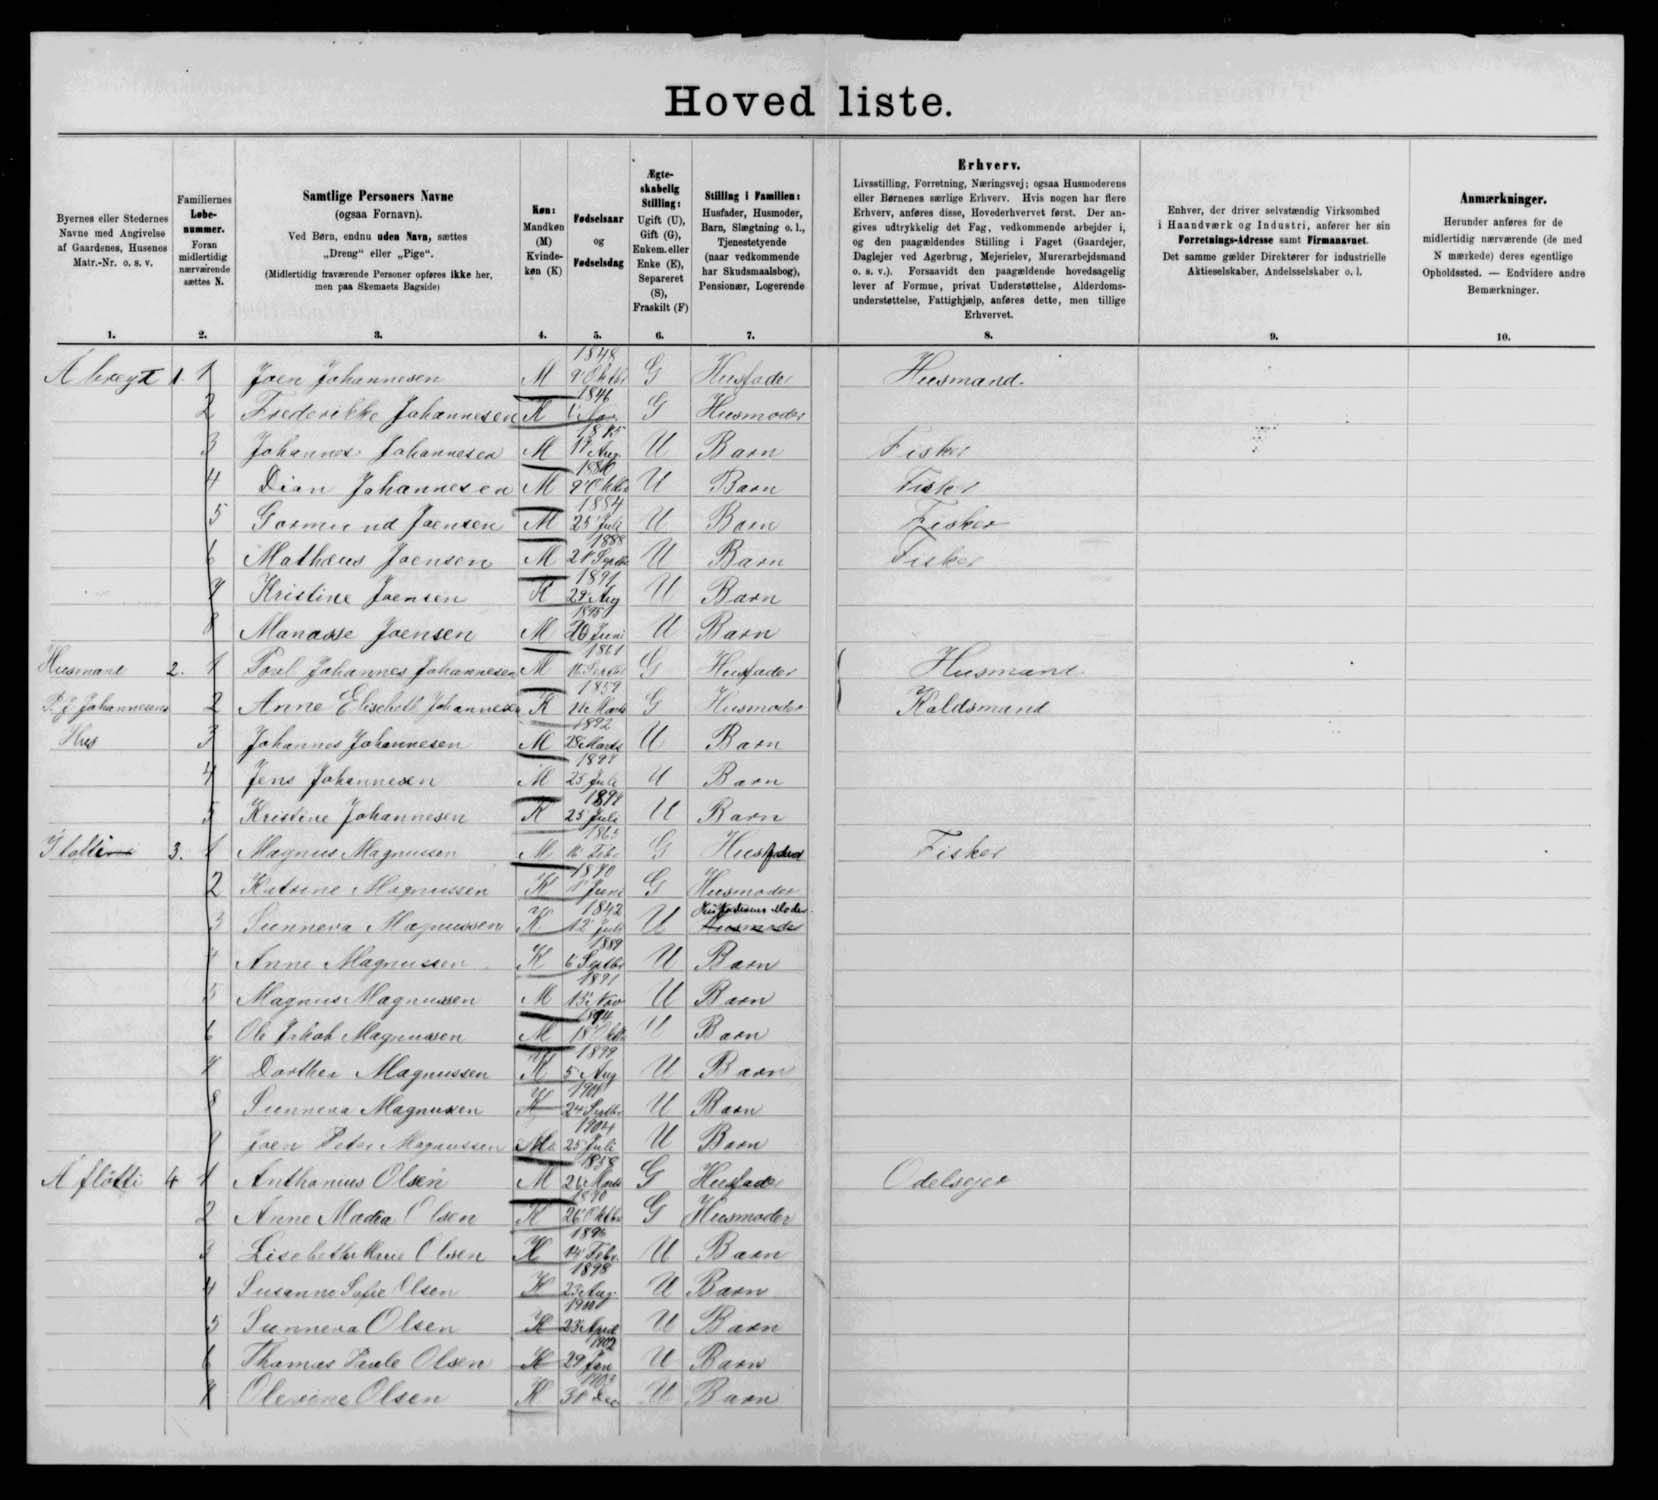 Hovedliste.
Byernes eller Stedernes
Navne med Angivelse
af Gaardenes, Husenes
Matr.-Nr. o. s. v.
1.
Familiernes
Løbe-
nummer.
Foran
midlertidig
nærværende
sættes N.
2.
Samtlige Personers Navne
(ogsaa Fornavn).
Ved Børn, endnu uden Navn, sættes
„Dreng“ eller „Pige“.
(Midlertidig fraværende Personer opføres ikke her,
men paa Skemaets Bagside)
3.
Køn:
Mandkøn
(M)
Kvinde-
køn (K)
4.
Fødselsaar
og
Fødselsdag
5.
Ægte-
skabelig
Stilling:
Ugift (U),
Gift (G),
Enkem. eller
Enke (E),
Separeret
(S),
Fraskilt (F)
6.
Stilling i Familien:
Husfader, Husmoder,
Barn, Slægtning o. l.,
Tjenestetyende
(naar vedkommende
har Skudsmaalsbog),
Pensionær, Logerende
7.
Erhverv.
Livsstilling, Forretning, Næringsvej; ogsaa Husmoderens
eller Børnenes særlige Erhverv. Hvis nogen har flere
Erhverv, anføres disse, Hovederhvervet først. Der an-
gives udtrykkelig det Fag, vedkommende arbejder i,
og den paagældendes Stilling i Faget (Gaardejer,
Daglejer ved Agerbrug, Mejerielev, Murerarbejdsmand
o. s. v.). Forsaavidt den paagældende hovedsagelig
lever af Formue, privat Understøttelse, Alderdoms-
understøttelse, Fattighjælp, anføres dette, men tillige
Erhvervet.
8.
Enhver, der driver selvstændig Virksomhed
i Haandværk og Industri, anfører her sin
Forretnings-Adresse samt Firmanavnet.
Det samme gælder Direktører for industrielle
Aktieselskaber, Andelsselskaber o. l.
9.
Anmærkninger.
Herunder anføres for de
midlertidig nærværende (de med
N mærkede) deres egentlige
Opholdssted. — Endvidere andre
Bemærkninger.
10.
1. 1 Joen Johannesen M 1848 9' Oktbr G Husfader Husmand.
2 Frederikke Johannesen K 1846 G Husmoder
3 Johannes Johannesen M 17 Aug U Barn Fisker
4 Dion Johannesen M 9' Oktbr U Barn Fisker
5 Gormund Joensen M 1884 25' Juli U Barn Fisker
6 Mathæus Joensen M 1888 21' Septbr U Barn Fisker
7 Kristine Joensen K 1891 29' Aug U Barn
8 Manasse Joensen M 1895 20 Juni U Barn
Husmand 2. 1 Poul Johannes Johannesen M 1861 Septbr G Husfader Husmand
P. J. Johannesens 2 Anne Elisebeth Johannesen K 1859 Marts G Husmoder Kaldsmand
Hus 3 Johannes Johannesen M 1892 28 Marts U Barn
4 Jens Johannesen M 25 Juli U Barn
5 Kristine Johannesen K 1898 25' Juli U Barn
3. 1 Magnus Magnussen M 1865 Febr G Husfader Fisker
2 Katrine Magnussen K Juni G Husmoder
3 Sunneva Magnussen K 1842 12' Juli U
4 Anne Magnussen K 1889 6 Septbr U Barn
5 Magnus Magnussen M 1891 13' Nov U Barn
6 Ole Jakob Magnussen M 1894 18' Oktbr U Barn
7 Dorthea Magnussen K 1899 5 Aug U Barn
8 Sunneva Magnussen K 1901 24' Septbr U Barn
9 Joen Peter Magnussen M 1904 25' Juli U Barn
A fløtti 4 1 Anthonius Olsen M 1858 Marts G Husfader Odelsejer
2 Anne Maria Olsen K 26' Oktbr G Husmoder
3 Olsen K 14' Febr U Barn
4 Susanne Sofie Olsen K 1898 23 Aug. U Barn
5 Sunneva Olsen K 23' April U Barn
6 Thomas Olsen K 1902 29' Jan U Barn
7 Olevine Olsen K 1903 31' Dec U Barn